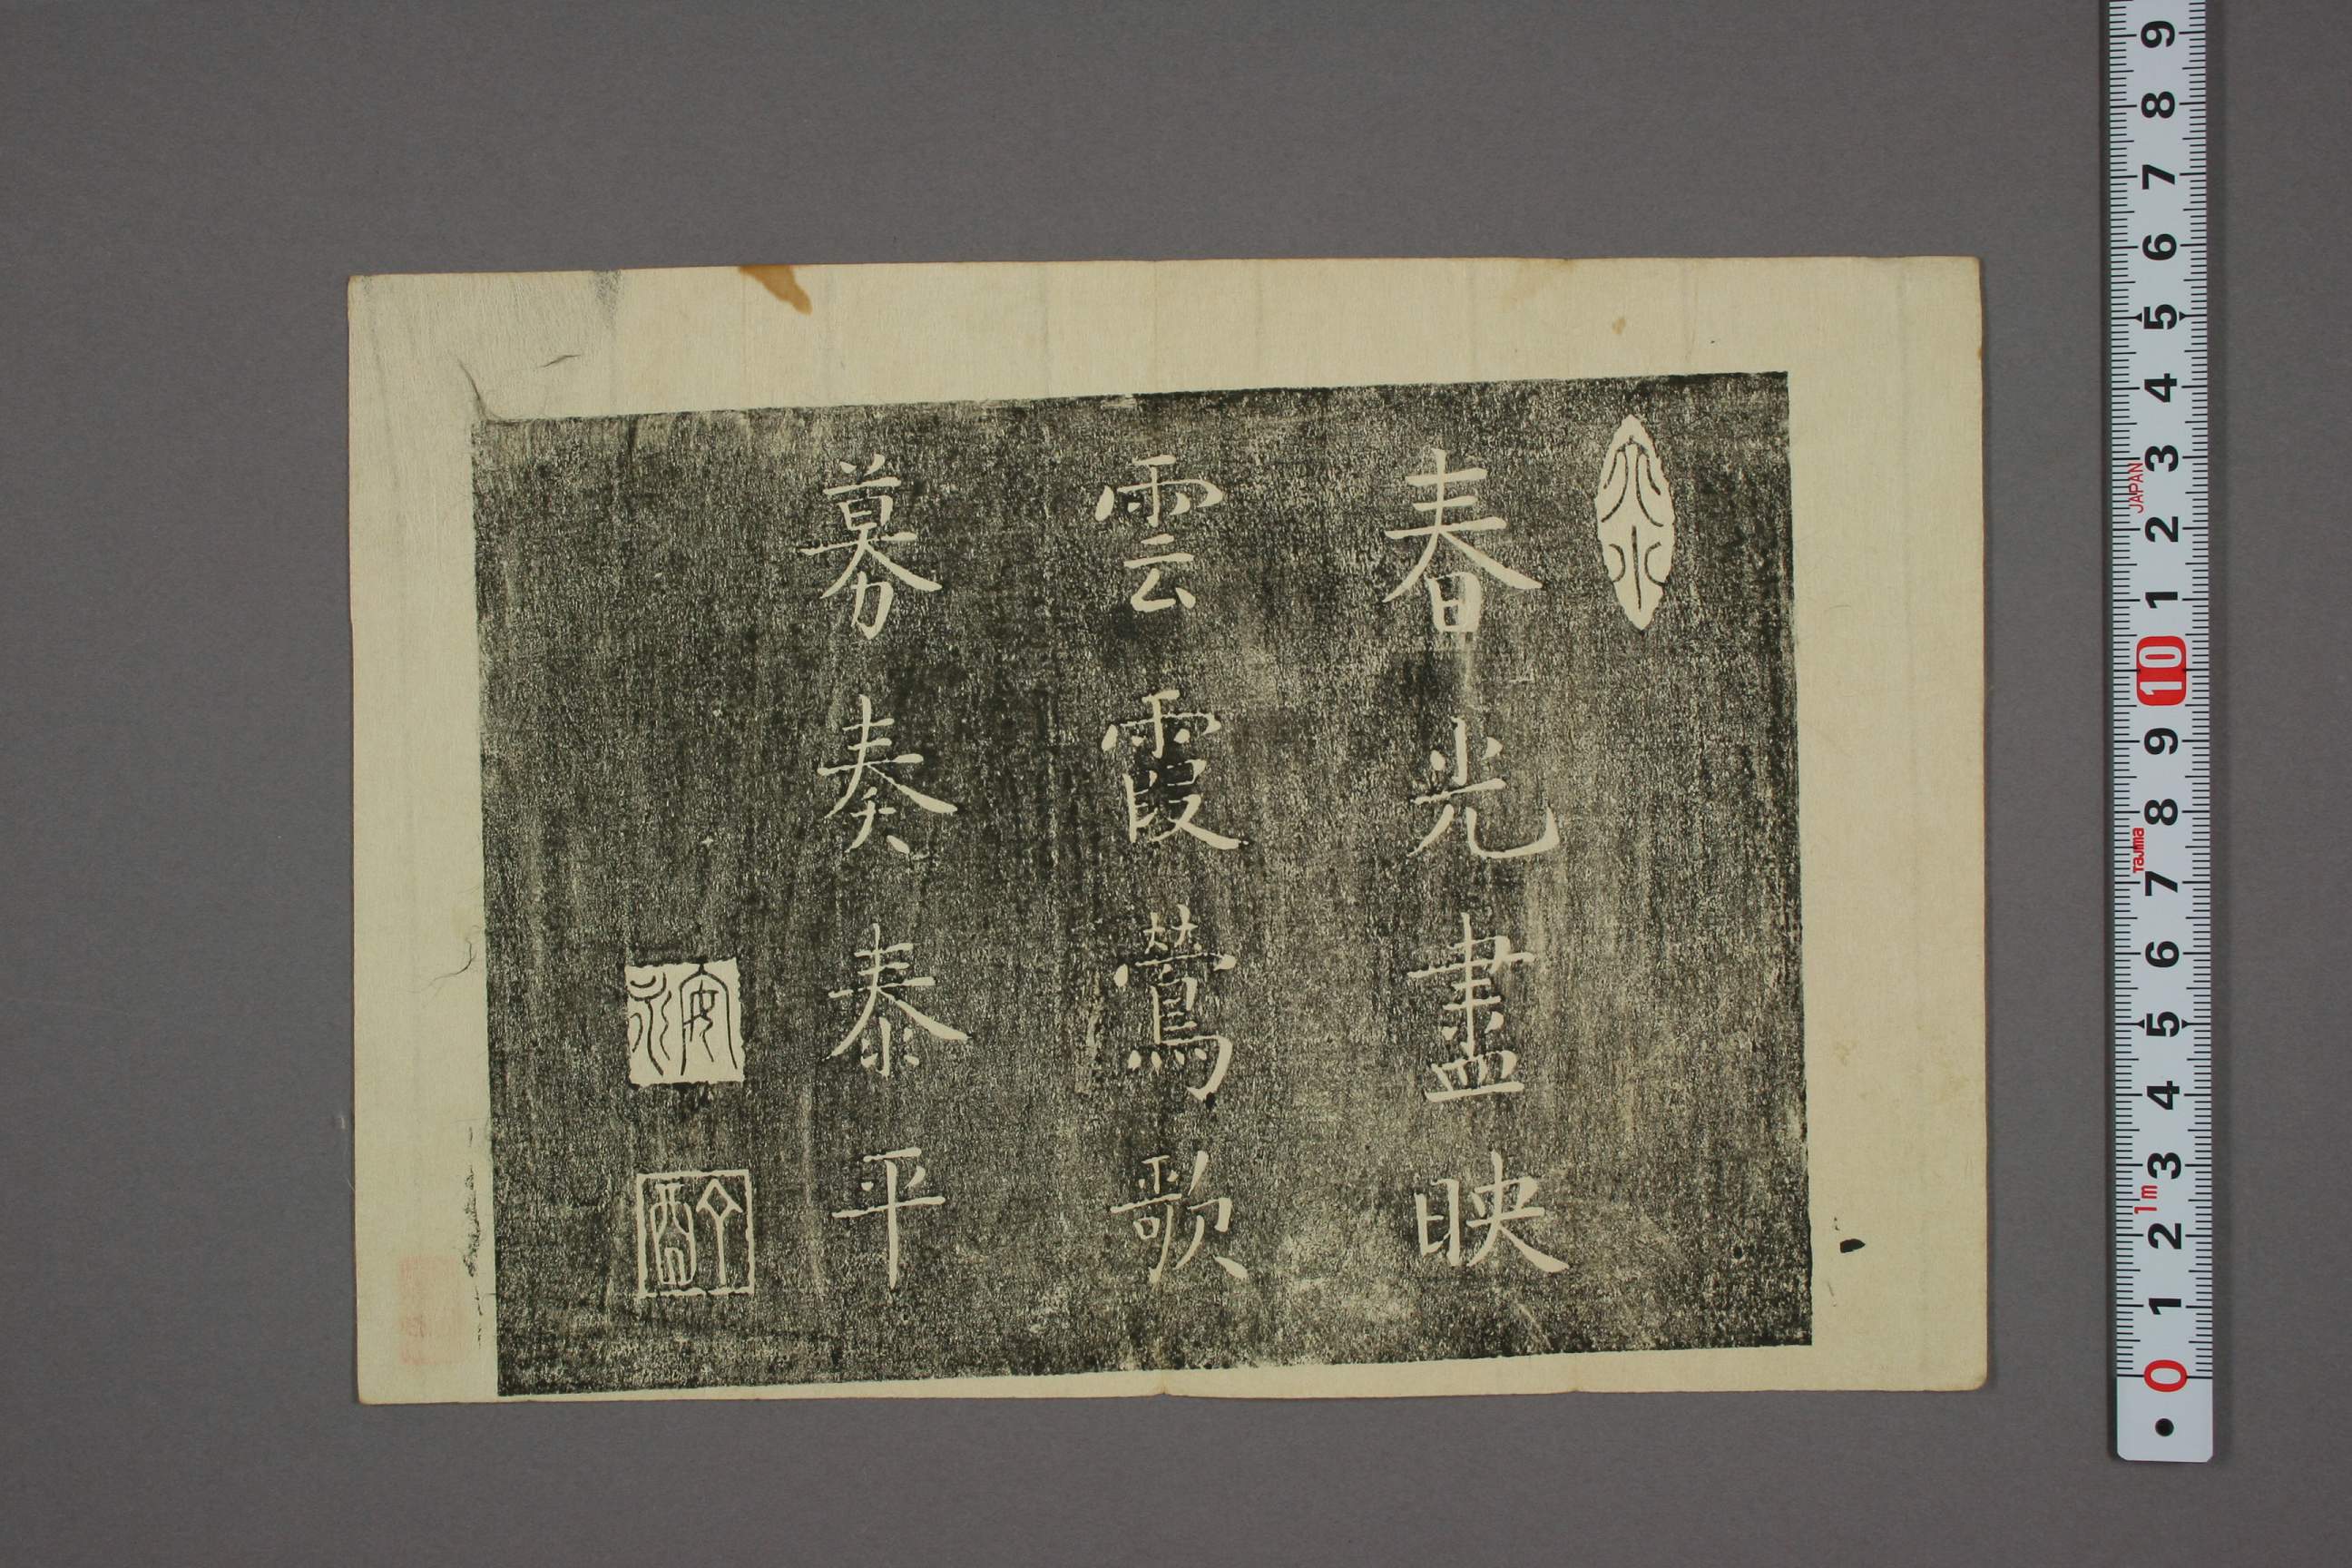 春光盡映
雲霞鶯歌
募奏泰平
9
8
7
6
5
4
3
JAPAN
2
1
10
9
8
Tajima
7
6
5
4
3
1m
2
1
0